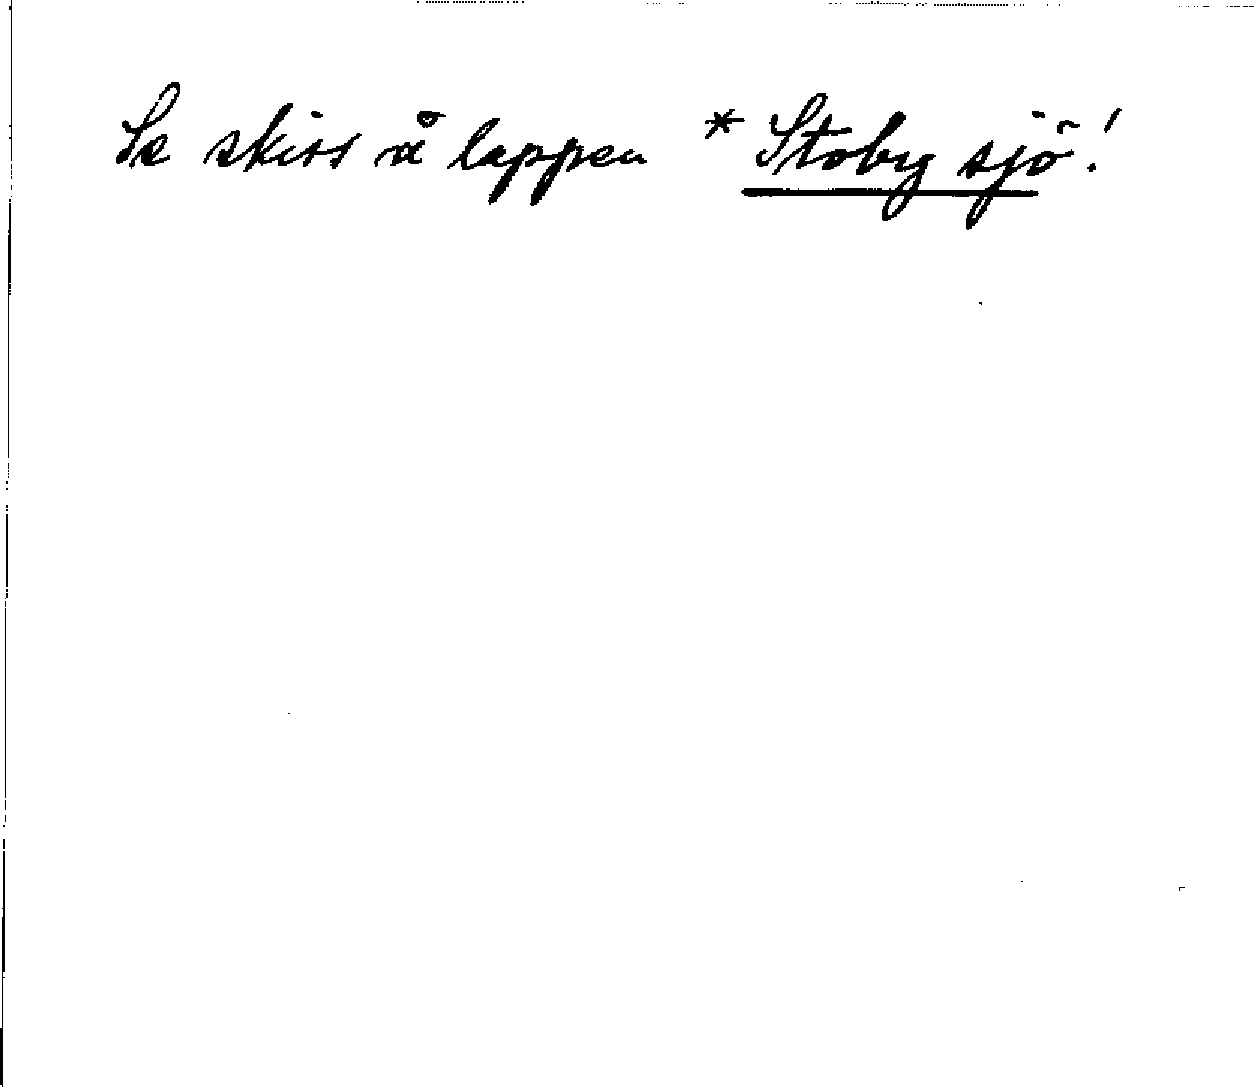 Se skiss å lappen * Stoby sjö!